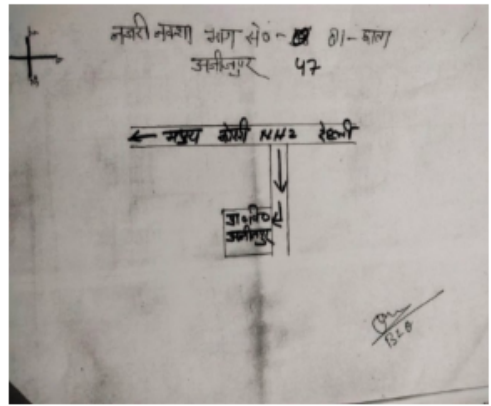 नजरी नक्शा भाग सं० - 81 - छाता
अजीजपुर 47
← मथुरा कोसी NH2 देहली
प्रा० वि०
अजीजपुर
BLO